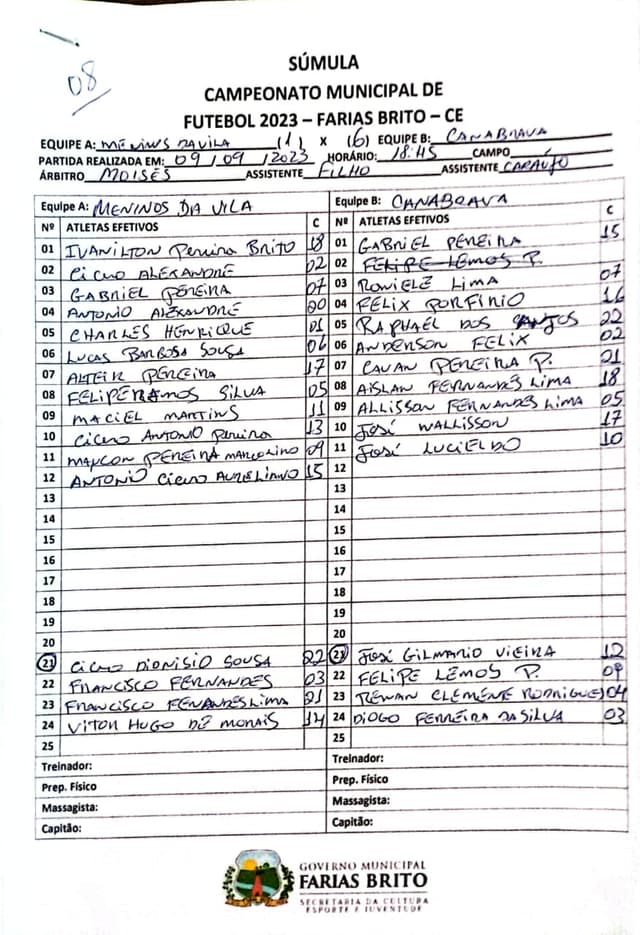 08
SÚMULA
CAMPEONATO MUNICIPAL DE
FUTEBOL 2023 – FARIAS BRITO – CE
EQUIPE A: MENINOS DA VILA (1) X (6) EQUIPE B: CANABRAVA
PARTIDA REALIZADA EM: 09/09/2023 HORÁRIO: 18:HS CAMPO
ÁRBITRO MOISÉS ASSISTENTE FILHO ASSISTENTE CARAÚJO
Equipe A: MENINOS DA VILA Equipe B: CANABRAVA
Nº ATLETAS EFETIVOS C Nº ATLETAS EFETIVOS C
01 IVANILTON Pereira BRITO 18 01 GABRIEL PEREIRA 15
02 Cicero ALEXANDRE 02 02 FELIPE LEMOS P.
03 GABRIEL PEREIRA 07 03 RONIELE LIMA 07
04 ANTONIO ALEXANDRE 20 04 FELIX PORFIRIO 16
05 CHARLES HENRIQUE 01 05 RAPHAEL DOS SANTOS 22
06 LUCAS BARBOSA SOUSA 06 06 ANDERSON FELIX 02
07 ALTEIR PEREIRA 17 07 CAUAN PEREIRA P. 21
08 FELIPE RAMOS SILVA 05 08 AISLAN FERNANDES LIMA 18
09 MACIEL MARTINS 11 09 ALLISSON FERNANDES LIMA 05
10 Cicero ANTONIO Pereira 13 10 JOSÉ WALLISSON 17
11 MAYCON PEREIRA MARCOLINO 09 11 JOSÉ LUCIELDO 10
12 ANTONIO Cicero AURELIANO 15 12
13 13
14 14
15 15
16 16
17 17
18 18
19 19
20 20
21 Cicero DIONISIO SOUSA 22 21 JOSÉ GILMARIO VIEIRA 12
22 FRANCISCO FERNANDES 03 22 FELIPE LEMOS P. 09
23 FRANCISCO FENANDES LIMA 21 23 RENAN CLEMENTE RODRIGUES 04
24 VITOR HUGO DE MORAIS 14 24 DIOGO FERREIRA DA SILVA 03
25 25
Treinador: Treinador:
Prep. Físico Prep. Físico
Massagista: Massagista:
Capitão: Capitão:
GOVERNO MUNICIPAL
FARIAS BRITO
SECRETARIA DA CULTURA
ESPORTE E JUVENTUDE